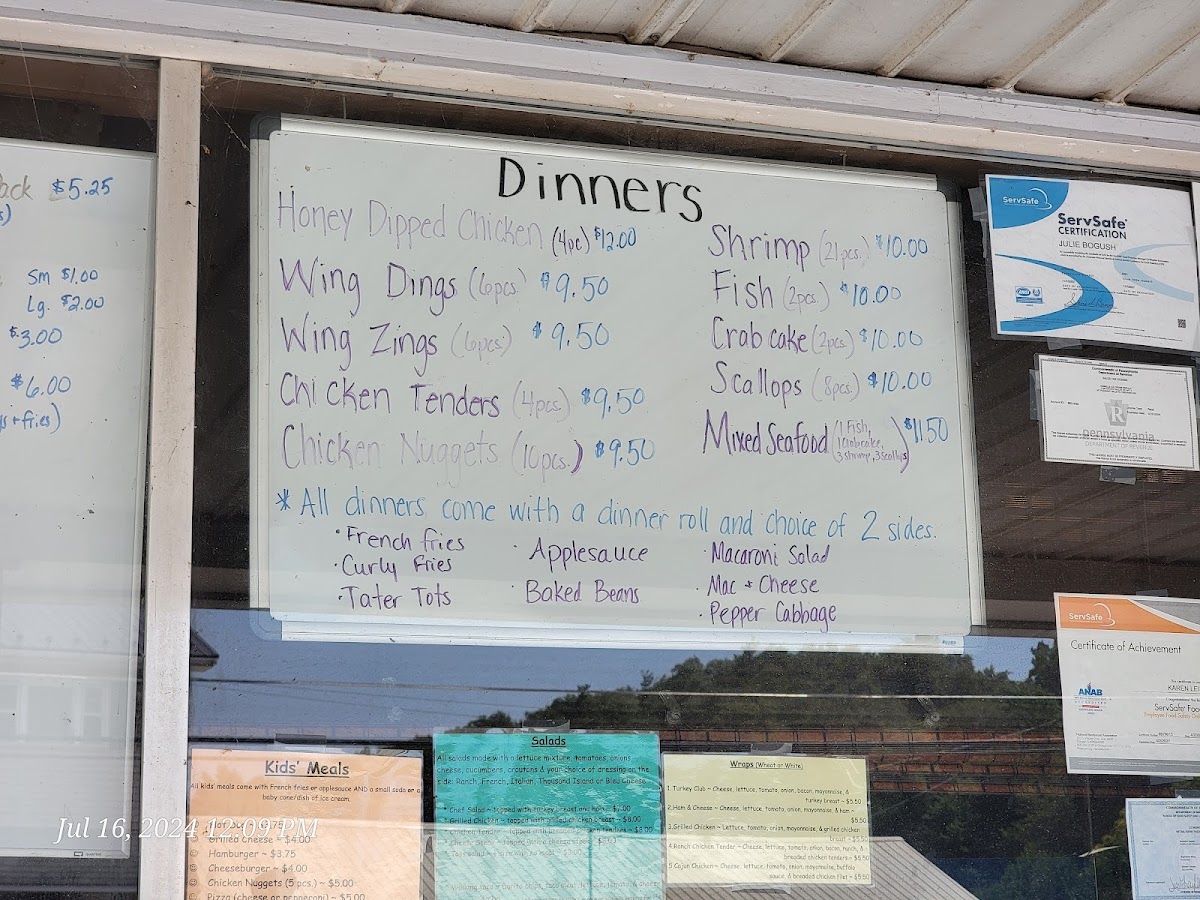 $5.25
Sm $1.00
Lg. $2.00
$3.00
$6.00
Dinners
Honey Dipped Chicken (4pc.) $12.00
Wing Dings (6pcs.) $9.50
Wing Zings (6pcs.) $9.50
Chicken Tenders (4pcs.) $9.50
Chicken Nuggets (10pcs.) $9.50
Shrimp (21pcs.) $10.00
Fish (2pcs.) $10.00
Crab cake (2pcs.) $10.00
Scallops (8pcs.) $10.00
Mixed Seafood (1 Fish, 1 Crabcake, 3 shrimp, 3 scallops) $11.50
* All dinners come with a dinner roll and choice of 2 sides.
· French fries
· Curly Fries
· Tater Tots
· Applesauce
· Baked Beans
· Macaroni Salad
· Mac + Cheese
· Pepper Cabbage
ServSafe
ServSafe®
CERTIFICATION
JULIE BOGUSH
pennsylvania
DEPARTMENT OF REVENUE
ServSafe
Certificate of Achievement
KAREN
ServSafe®
ANAB
Kids' Meals
All kids meals come with French fries or applesauce AND a small soda or a
baby cone/dish of ice cream.
Grilled Cheese ~ $4.00
Hamburger ~ $3.75
Cheeseburger ~ $4.00
Chicken Nuggets (5 pcs.) ~ $5.00
Pizza (cheese or pepperoni) ~ $5.00
Salads
All salads made with a lettuce mixture, tomatoes, onions,
cheese, cucumbers, croutons & your choice of dressing on the
side: Ranch, French, Italian, Thousand Island or Bleu Cheese
* Chef Salad ~ topped with turkey breast and ham ~ $7.00
* Grilled Chicken ~ topped with grilled chicken breast ~ $8.00
Wraps (Wheat or White)
1. Turkey Club ~ Cheese, lettuce, tomato, onion, bacon, mayonnaise, &
turkey breast ~ $5.50
2. Ham & Cheese ~ Cheese, lettuce, tomato, onion, mayonnaise, & ham ~
$5.50
3. Grilled Chicken ~ Lettuce, tomato, onion, mayonnaise, & grilled chicken
breast ~ $5.50
4. Ranch Chicken Tender ~ Cheese, lettuce, tomato, onion, bacon, ranch, &
breaded chicken tenders ~ $5.50
5. Cajun Chicken ~ Cheese, lettuce, tomato, onion, mayonnaise, buffalo
sauce, & breaded chicken filet ~ $5.50
Jul 16, 2024 12:09 PM